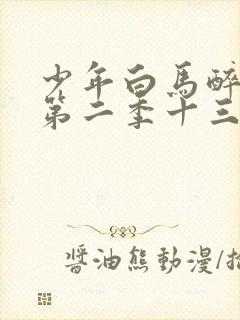 少年白馬醉
第二季十三
醬油熊動漫/